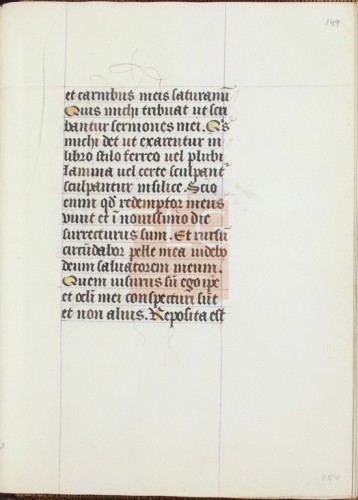 149
et carnibus meis saturamī
Quis michi tribuat ut scri
bantur sermones mei. Qs
michi det ut exarentur in
libro stilo ferreo uel plūbi
lamina uel certe sculpantr
sculpantur in silice. Scio
enim qd redemptor meus
viuit et ī nouissimo die
surrecturus sum. Et rursū
circūdabor pelle mea uidebo
deum saluatorem meum.
Quem uisurus sū ego ipe
et oclī mei conspecturi sūt
et non alius. Reposita est
150